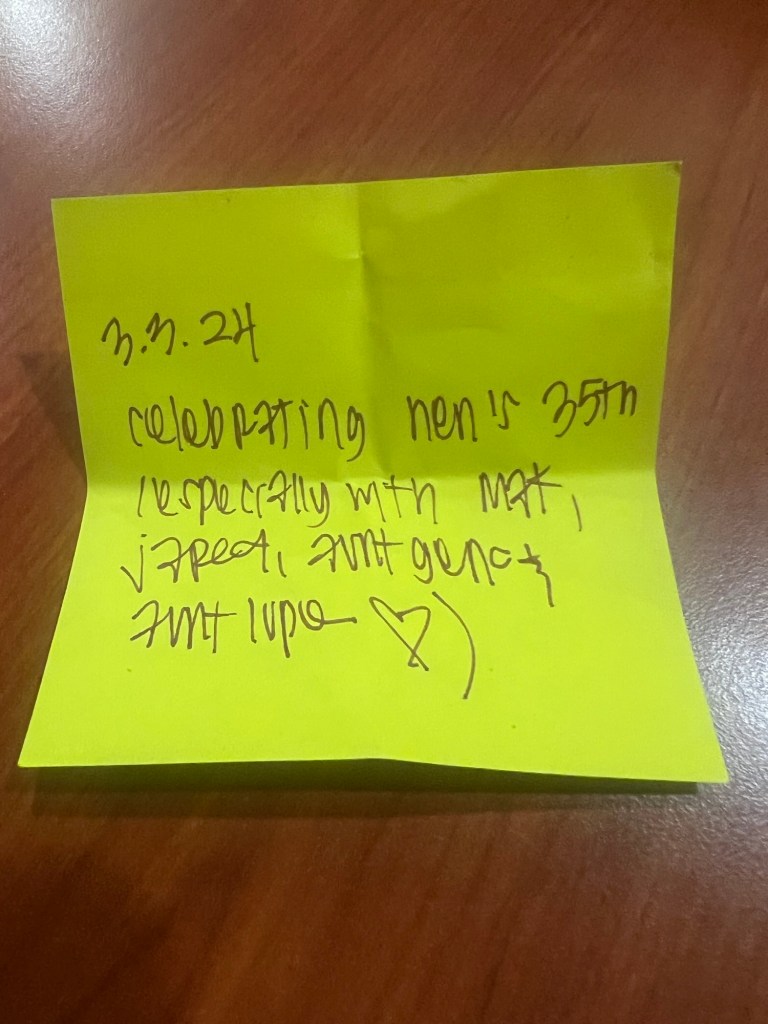 3.3.24
celebrating nen's 35th
(especially with mak,
jared, aunt gena &
aunt lupe ♡)